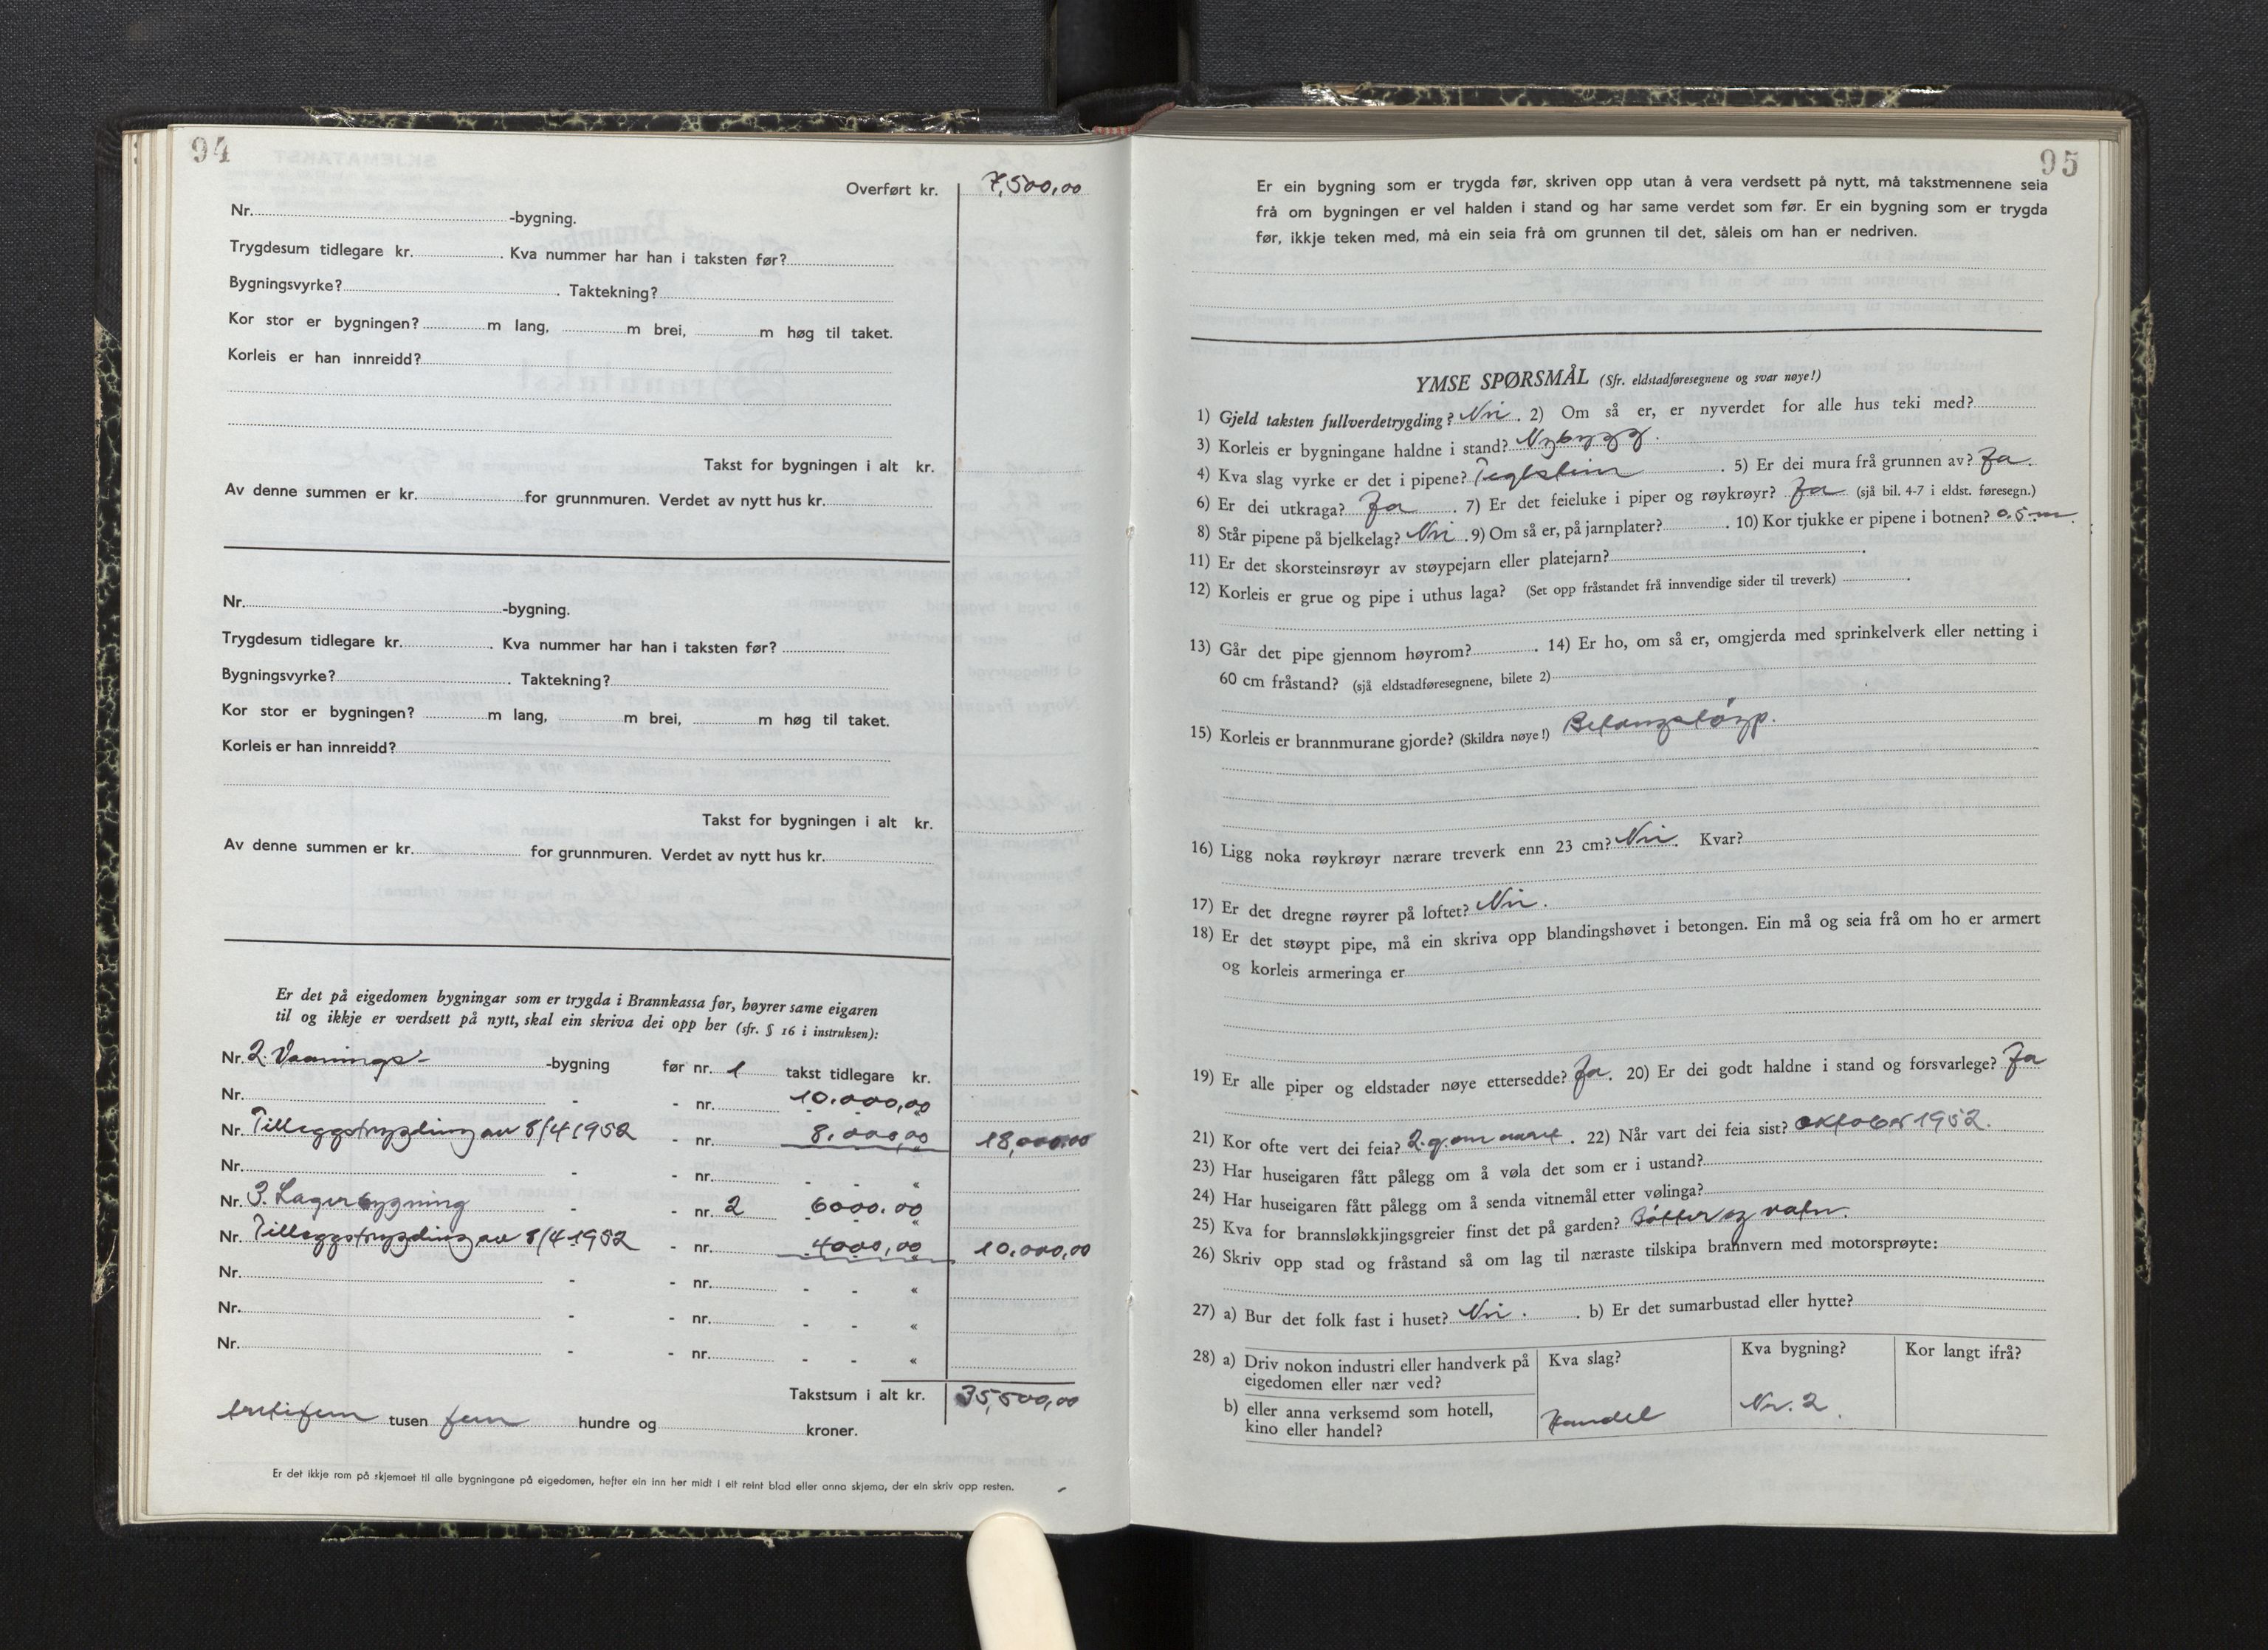 94
Overført kr. 7,500,00
Nr. -bygning.
Trygdesum tidlegare kr. . Kva nummer har han i taksten før?
Bygningsvyrke? . Taktekning?
Kor stor er bygningen? m lang, m brei, m høg til taket.
Korleis er han innreidd?
Takst for bygningen i alt kr.
Av denne summen er kr. for grunnmuren. Verdet av nytt hus kr.
Nr. -bygning.
Trygdesum tidlegare kr. . Kva nummer har han i taksten før?
Bygningsvyrke? . Taktekning?
Kor stor er bygningen? m lang, m brei, m høg til taket.
Korleis er han innreidd?
Takst for bygningen i alt kr.
Av denne summen er kr. for grunnmuren. Verdet av nytt hus kr.
Er det på eigedomen bygningar som er trygda i Brannkassa før, høyrer same eigaren
til og ikkje er verdsett på nytt, skal ein skriva dei opp her (sfr. § 16 i instruksen):
Nr. 2. Vaanings- -bygning før nr. 1 takst tidlegare kr.
Nr. - - nr. 10.000,00
Nr. Tilleggstrygding av 8/4 1952 - nr. 8.000,00 18,000,00
Nr. - - nr. - - «
Nr. 3. Lagerbygning - - nr. 2 6000.00
Nr. Tilleggstrygding av 8/4 1952 - nr. 4000,00 10.000,00
Nr. - - nr. - - «
Nr. - - nr. - - «
Nr. - - nr. - - «
Takstsum i alt kr. 35,500,00
trettifem tusen fem hundre og kroner.
Er det ikkje rom på skjemaet til alle bygningane på eigedomen, hefter ein inn her midt i eit reint blad eller anna skjema, der ein skriv opp resten.
95
Er ein bygning som er trygda før, skriven opp utan å vera verdsett på nytt, må takstmennene seia
frå om bygningen er vel halden i stand og har same verdet som før. Er ein bygning som er trygda
før, ikkje teken med, må ein seia frå om grunnen til det, såleis om han er nedriven.
YMSE SPØRSMÅL (Sfr. eldstadføresegnene og svar nøye!)
1) Gjeld taksten fullverdetrygding? Nei. 2) Om så er, er nyverdet for alle hus teki med?
3) Korleis er bygningane haldne i stand? Nybygg.
4) Kva slag vyrke er det i pipene? Teglstein . 5) Er dei mura frå grunnen av? Ja.
6) Er dei utkraga? Ja . 7) Er det feieluke i piper og røykrøyr? Ja (sjå bil. 4-7 i eldst. føresegn.)
8) Står pipene på bjelkelag? Nei . 9) Om så er, på jarnplater? . 10) Kor tjukke er pipene i botnen? 0.5 m.
11) Er det skorsteinsrøyr av støypejarn eller platejarn? .
12) Korleis er grue og pipe i uthus laga? (Set opp fråstandet frå innvendige sider til treverk) .
13) Går det pipe gjennom høyrom? . 14) Er ho, om så er, omgjerda med sprinkelverk eller netting i
60 cm fråstand? (sjå eldstadføresegnene, bilete 2)
15) Korleis er brannmurane gjorde? (Skildra nøye!) Betongstøyp.
16) Ligg noka røykrøyr nærare treverk enn 23 cm? Nei. Kvar?
17) Er det dregne røyrer på loftet? Nei.
18) Er det støypt pipe, må ein skriva opp blandingshøvet i betongen. Ein må og seia frå om ho er armert
og korleis armeringa er
19) Er alle piper og eldstader nøye ettersedde? Ja. 20) Er dei godt haldne i stand og forsvarlege? Ja
21) Kor ofte vert dei feia? 2. g. om aaret. 22) Når vart dei feia sist? Oktober 1952.
23) Har huseigaren fått pålegg om å vøla det som er i ustand?
24) Har huseigaren fått pålegg om å senda vitnemål etter vølinga?
25) Kva for brannsløkkjingsgreier finst det på garden? Bøtter og vatn.
26) Skriv opp stad og fråstand så om lag til næraste tilskipa brannvern med motorsprøyte:
27) a) Bur det folk fast i huset? Nei. . b) Er det sumarbustad eller hytte?
28) a) Driv nokon industri eller handverk på
eigedomen eller nær ved?
Kva slag? Kva bygning? Kor langt ifrå?
b) eller anna verksemd som hotell,
kino eller handel?
Handel Nr. 2.